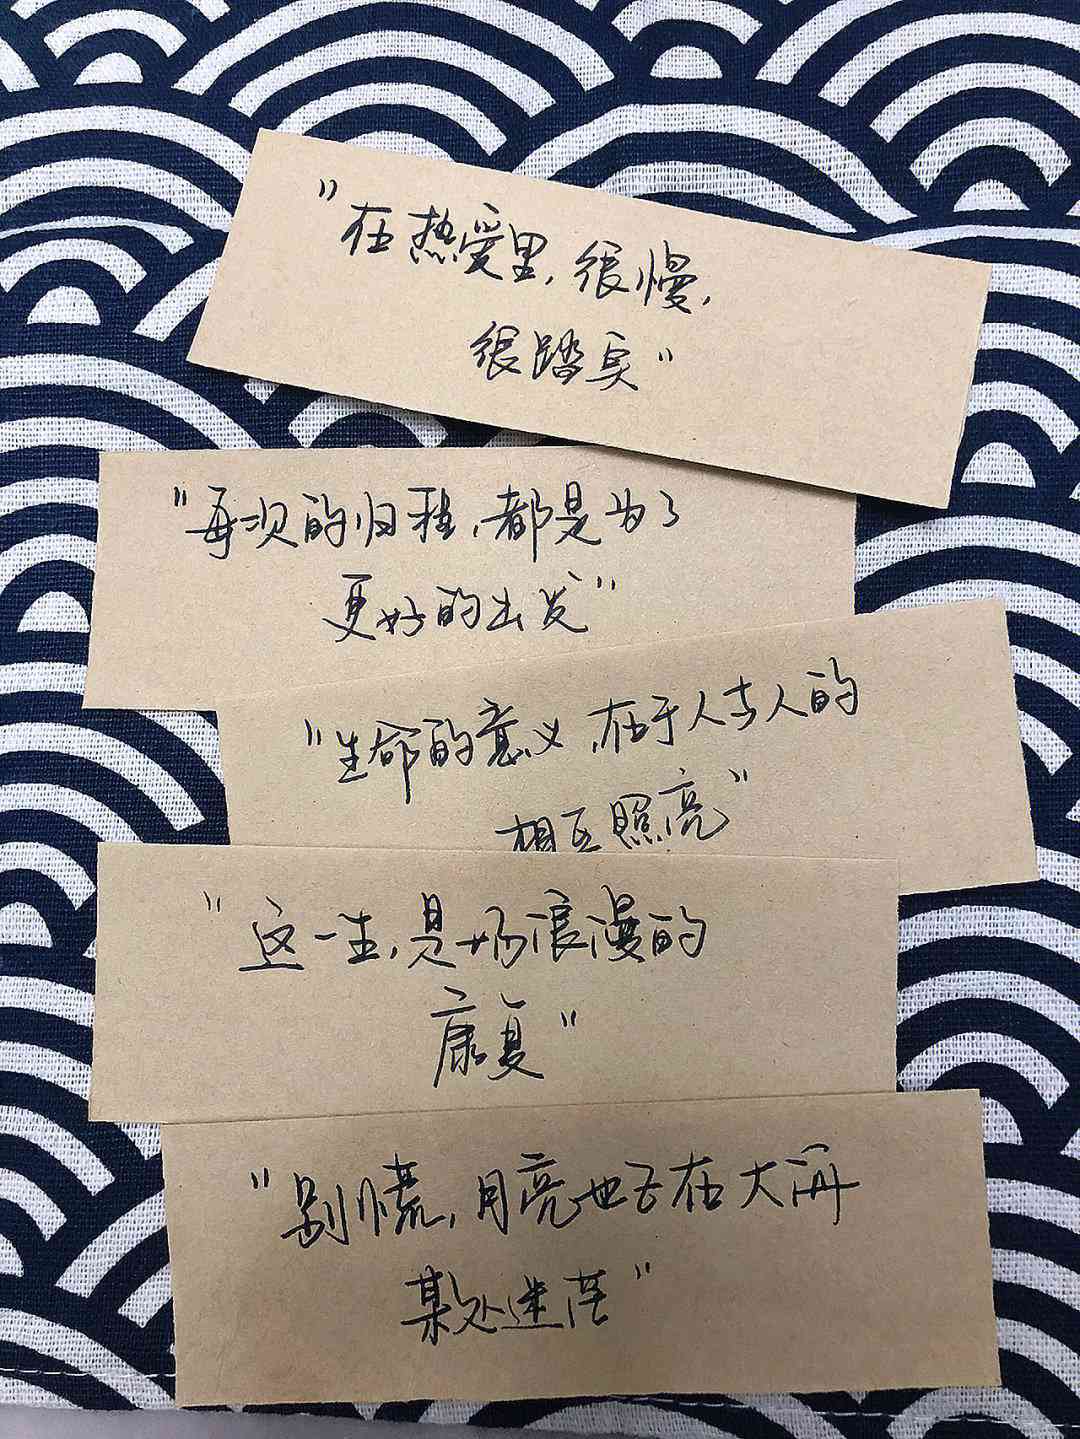 "在热爱里,很慢,
很踏实"
"每次的归程,都是为了
更好的出发"
"生命的意义,在于人与人的
相互照亮"
"这一生,是一场浪漫的
康复"
"别慌,月亮也在大海
某处迷茫"